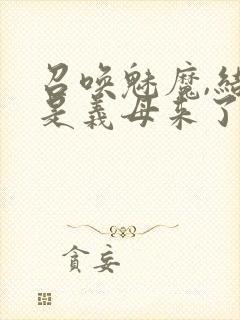 召唤魅魔,结
是义母来了
贪妄